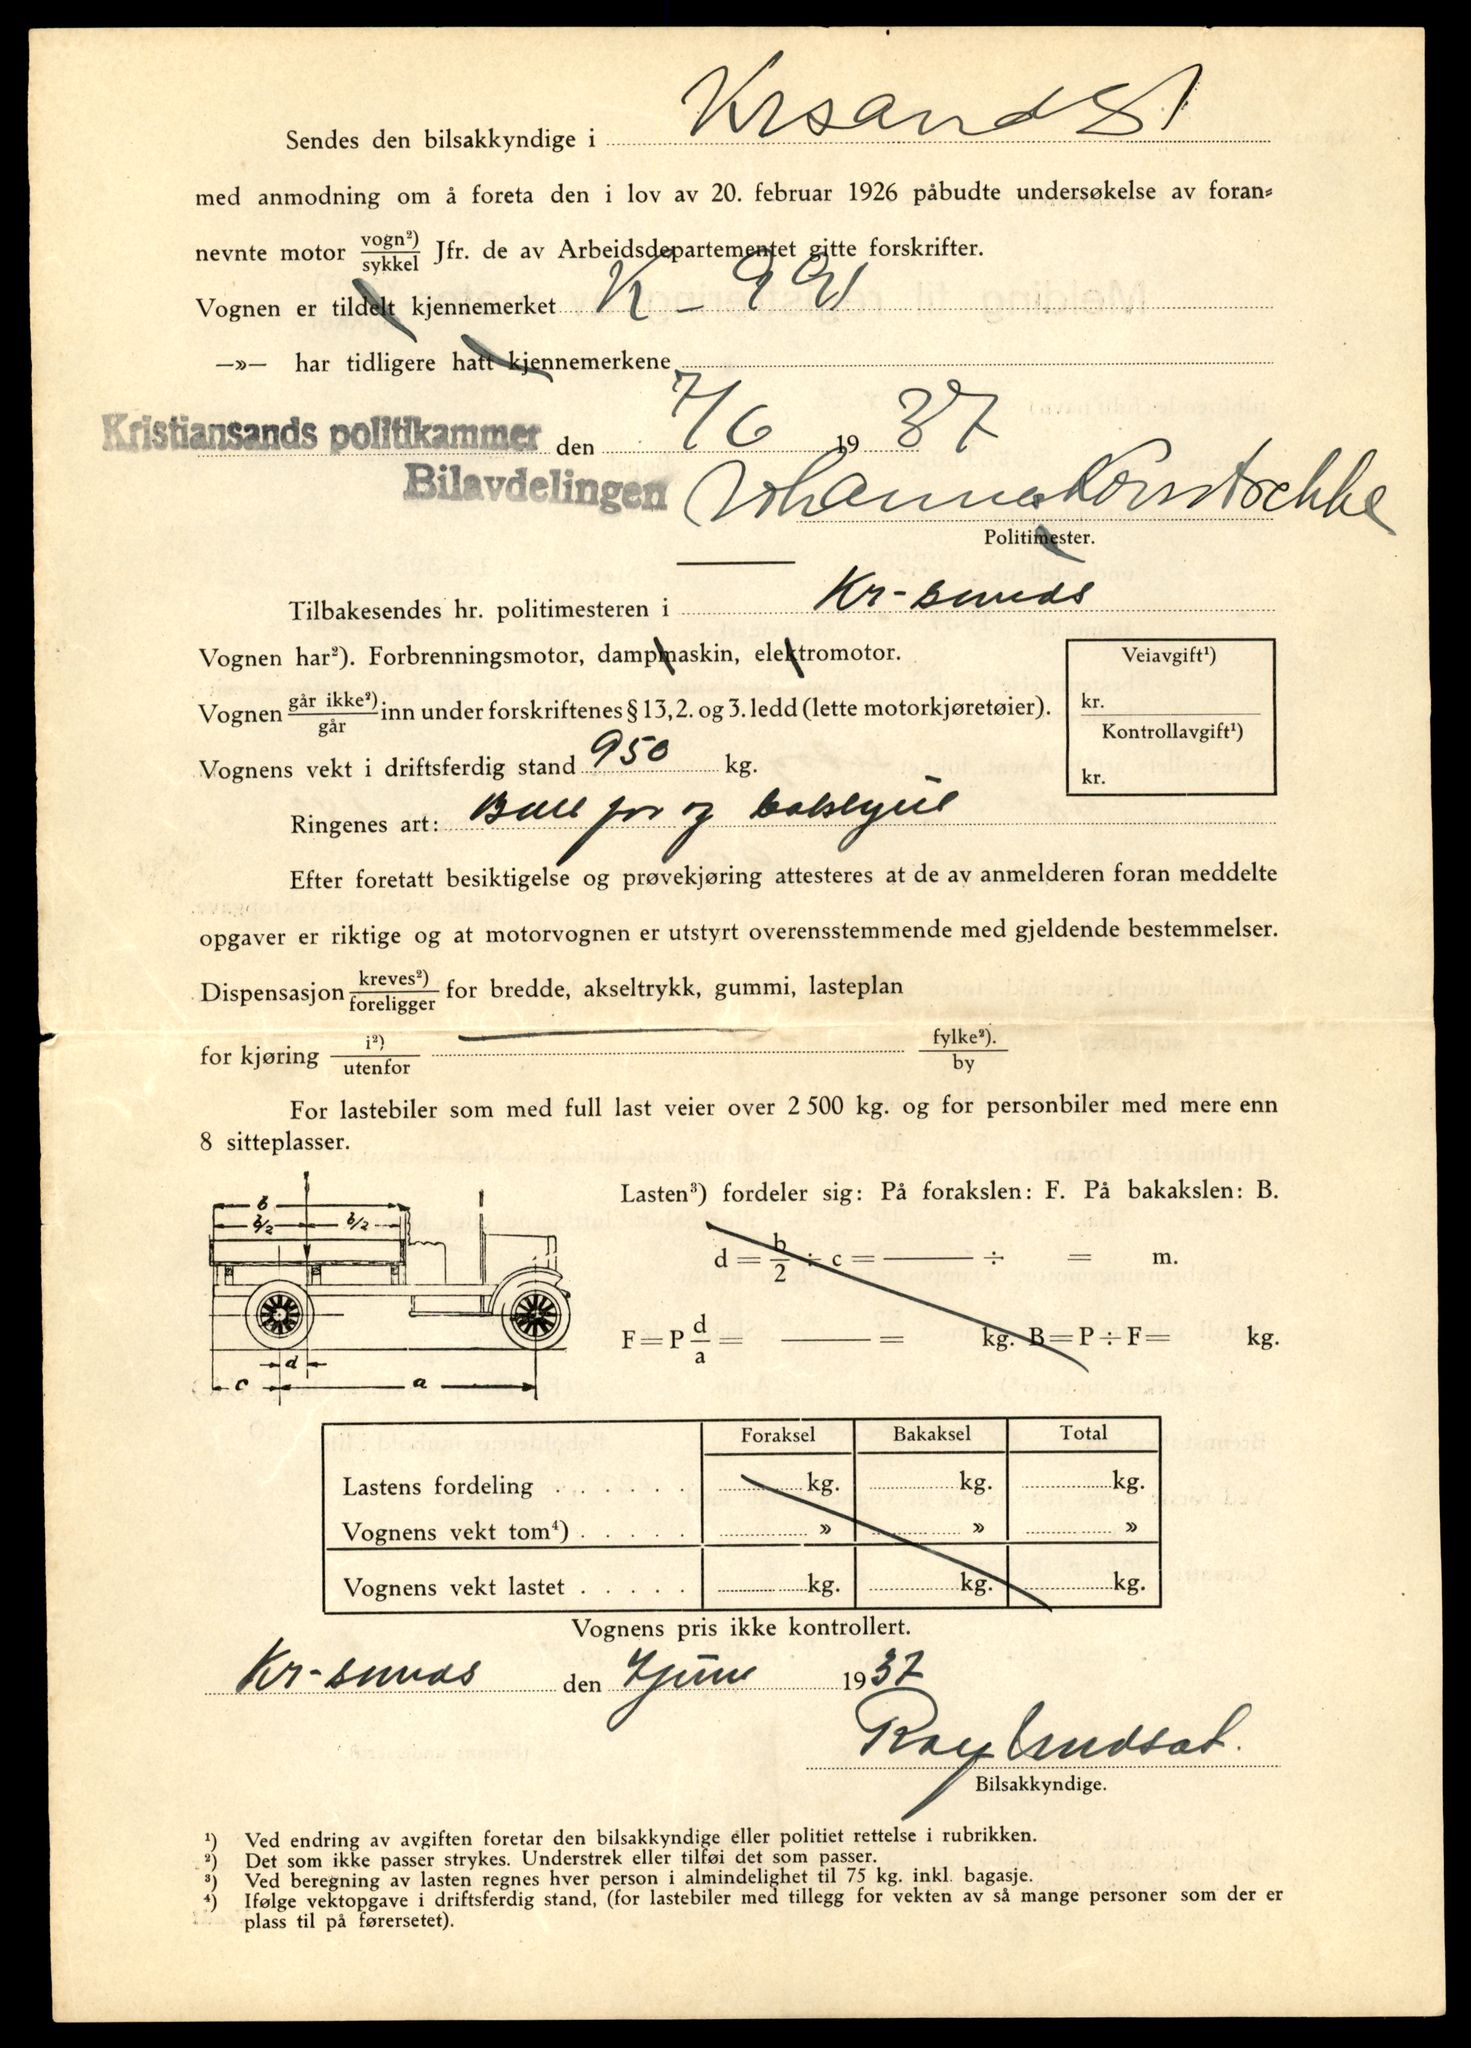 Sendes den bilsakkyndige i Krsand S
med anmodning om å foreta den i lov av 20. februar 1926 påbudte undersøkelse av foran=
nevnte motor vogn²)/sykkel Jfr. de av Arbeidsdepartementet gitte forskrifter.
Vognen er tildelt kjennemerket K - 991
—»— har tidligere hatt kjennemerkene
Kristiansands politikammer den 7/6 1937
Bilavdelingen Johannes
Politimester.
Tilbakesendes hr. politimesteren i Kr-sands
Vognen har²). Forbrenningsmotor, dampmaskin, elektromotor.
Veiavgift¹)
kr.
Vognen går ikke²)/går inn under forskriftenes § 13, 2. og 3. ledd (lette motorkjøretøier).
Kontrollavgift¹)
kr.
Vognens vekt i driftsferdig stand 950 kg.
Ringenes art: Ball for og bakhjul
Efter foretatt besiktigelse og prøvekjøring attesteres at de av anmelderen foran meddelte
opgaver er riktige og at motorvognen er utstyrt overensstemmende med gjeldende bestemmelser.
Dispensasjon kreves²)/foreligger for bredde, akseltrykk, gummi, lasteplan
for kjøring i²)/utenfor fylke²)./by
For lastebiler som med full last veier over 2 500 kg. og for personbiler med mere enn
8 sitteplasser.
b
b/2 b/2
d
c a
Lasten³) fordeler sig: På forakslen: F. På bakakslen: B.
d = b/2 ÷ c = —— ÷ = m.
F = P d/a = —— = kg. B = P ÷ F = kg.
Foraksel Bakaksel Total
Lastens fordeling . . . . . . kg. kg. kg.
Vognens vekt tom⁴) . . . . . » » »
Vognens vekt lastet . . . . . kg. kg. kg.
Vognens pris ikke kontrollert.
Kr-sands den 7 juni 1937
Bilsakkyndige.
¹) Ved endring av avgiften foretar den bilsakkyndige eller politiet rettelse i rubrikken.
²) Det som ikke passer strykes. Understrek eller tilføi det som passer.
³) Ved beregning av lasten regnes hver person i almindelighet til 75 kg. inkl. bagasje.
⁴) Ifølge vektopgave i driftsferdig stand, (for lastebiler med tillegg for vekten av så mange personer som der er
plass til på førersetet).